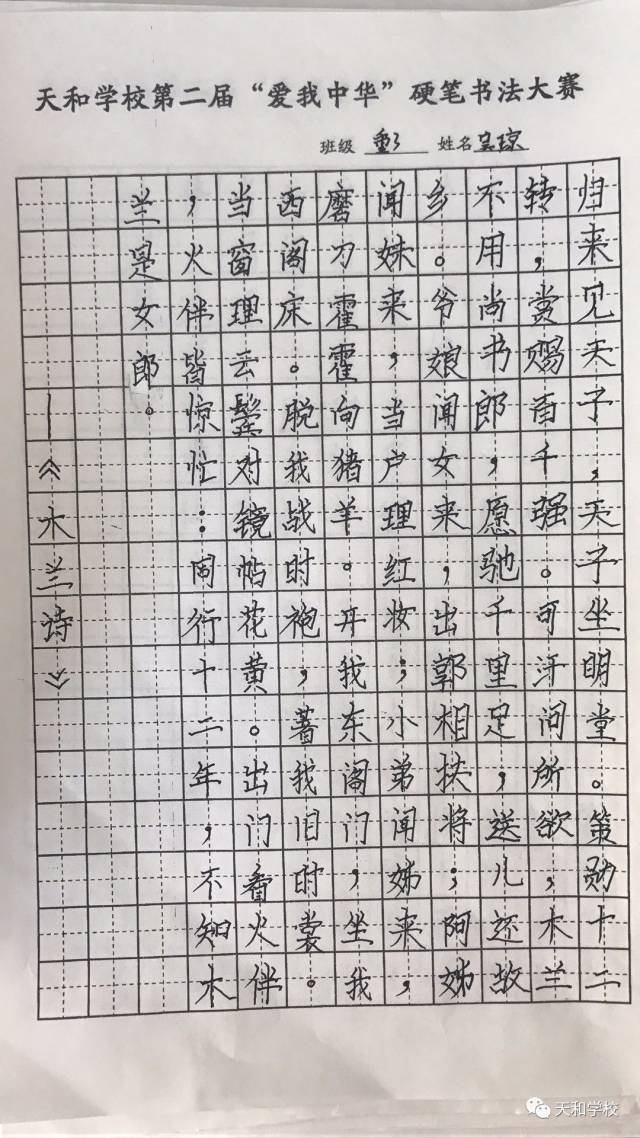 天和学校第二届“爱我中华”硬笔书法大赛
班级 姓名 吴琼
归来见天子，天子坐明堂。策勋十二
转，赏赐百千强。可汗问所欲，木兰
不用尚书郎，愿驰千里足，送儿还故
乡。爷娘闻女来，出郭相扶将；阿姊
闻妹来，当户理红妆；小弟闻姊来，
磨刀霍霍向猪羊。开我东阁门，坐我
西阁床。脱我战时袍，著我旧时裳。
当窗理云鬓对镜帖花黄。出门看火伴
，火伴皆惊忙：同行十二年，不知木
兰是女郎。
—《木兰诗》
天和学校